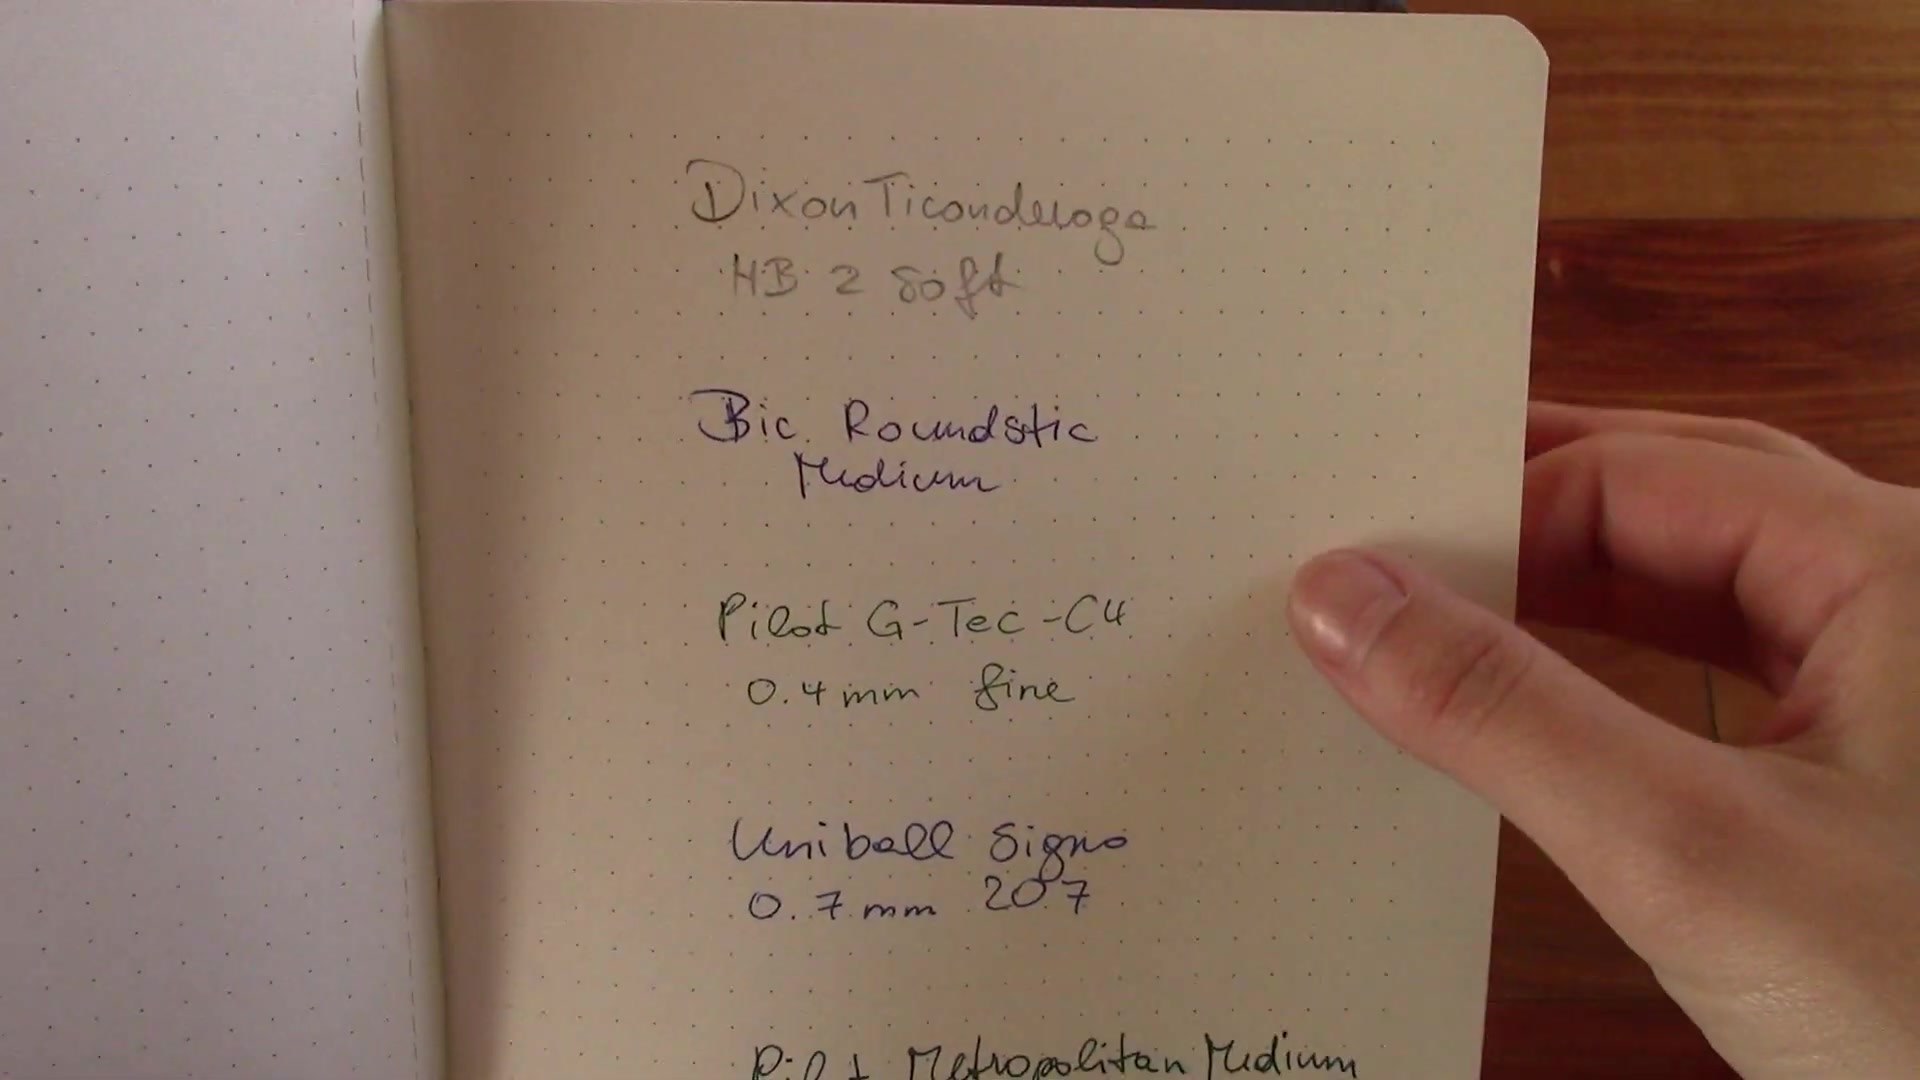 Dixon Ticonderoga
HB 2 soft
Bic Roundstic
Medium
Pilot G-Tec-C4
0.4 mm fine
Uniball Signo
0.7 mm 207
Pilot Metropolitan Medium